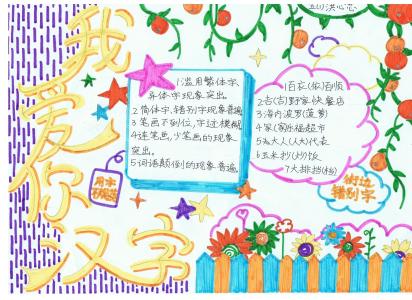 我爱你汉字
1滥用繁体字、
异体字现象突出
2简体字、错别字现象普遍
3笔画不到位,字迹模糊
4连笔画,少笔画的现象
突出,
5词语颠倒的现象普遍
用字
不规范
1百衣(依)百顺
2古(吉)野家快餐店
3海内波罗(菠萝)
4家(家)乐福超市
5太大人(人大)代表
6玉米抄(炒)饭
7大排挡(档)
街边
错别字